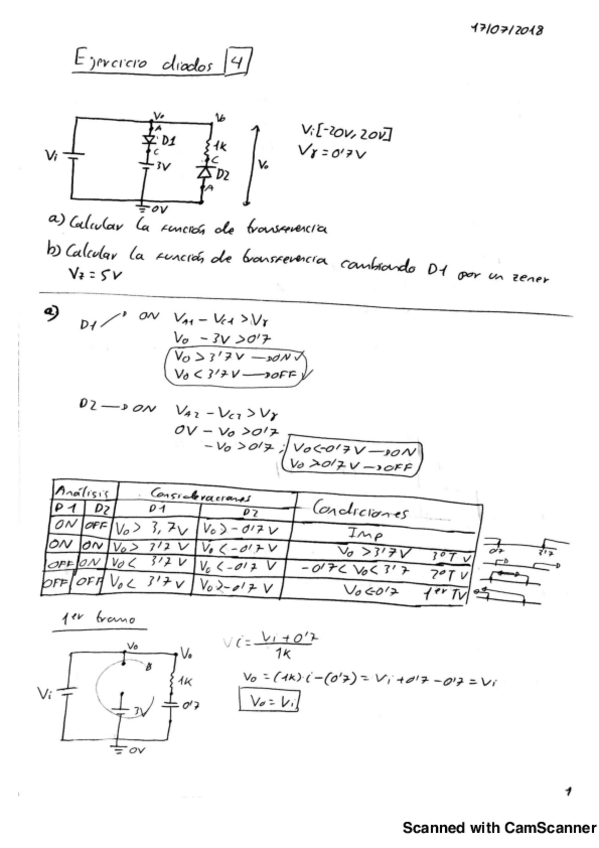 17/07/2018
Ejercicio diodos 4
Vo Vo
A
D1 1K Vi[-20V, 20V]
Vi C C Vo Vγ = 0'7V
3V D2
A
0V
a) Calcular la función de transferencia
b) Calcular la función de transferencia cambiando D1 por un zener
Vz = 5V
a)
D1 ON VA1 - VC1 > Vγ
Vo - 3V > 0'7
Vo > 3'7V → ON
Vo < 3'7V → OFF
D2 → ON VA2 - VC2 > Vγ
0V - Vo > 0'7
-Vo > 0'7; Vo < -0'7V → ON
Vo > 0'7V → OFF
Análisis Consideraciones Condiciones
D1 D2 D1 D2
ON OFF Vo > 3,7V Vo > -0'7V Imp
ON ON Vo > 3'7V Vo < -0'7V Vo > 3'7V 3º T V
OFF ON Vo < 3'7V Vo < -0'7V -0'7 < Vo < 3'7 2º T V
OFF OFF Vo < 3'7V Vo > -0'7V Vo < -0'7 1er TV
0'7 3'7
1er tramo
Vo Vo
Vi 1K
3V 0'7
0V
i = Vi + 0'7 / 1K
Vo = (1K)·i - (0'7) = Vi + 0'7 - 0'7 = Vi
Vo = Vi
1
Scanned with CamScanner